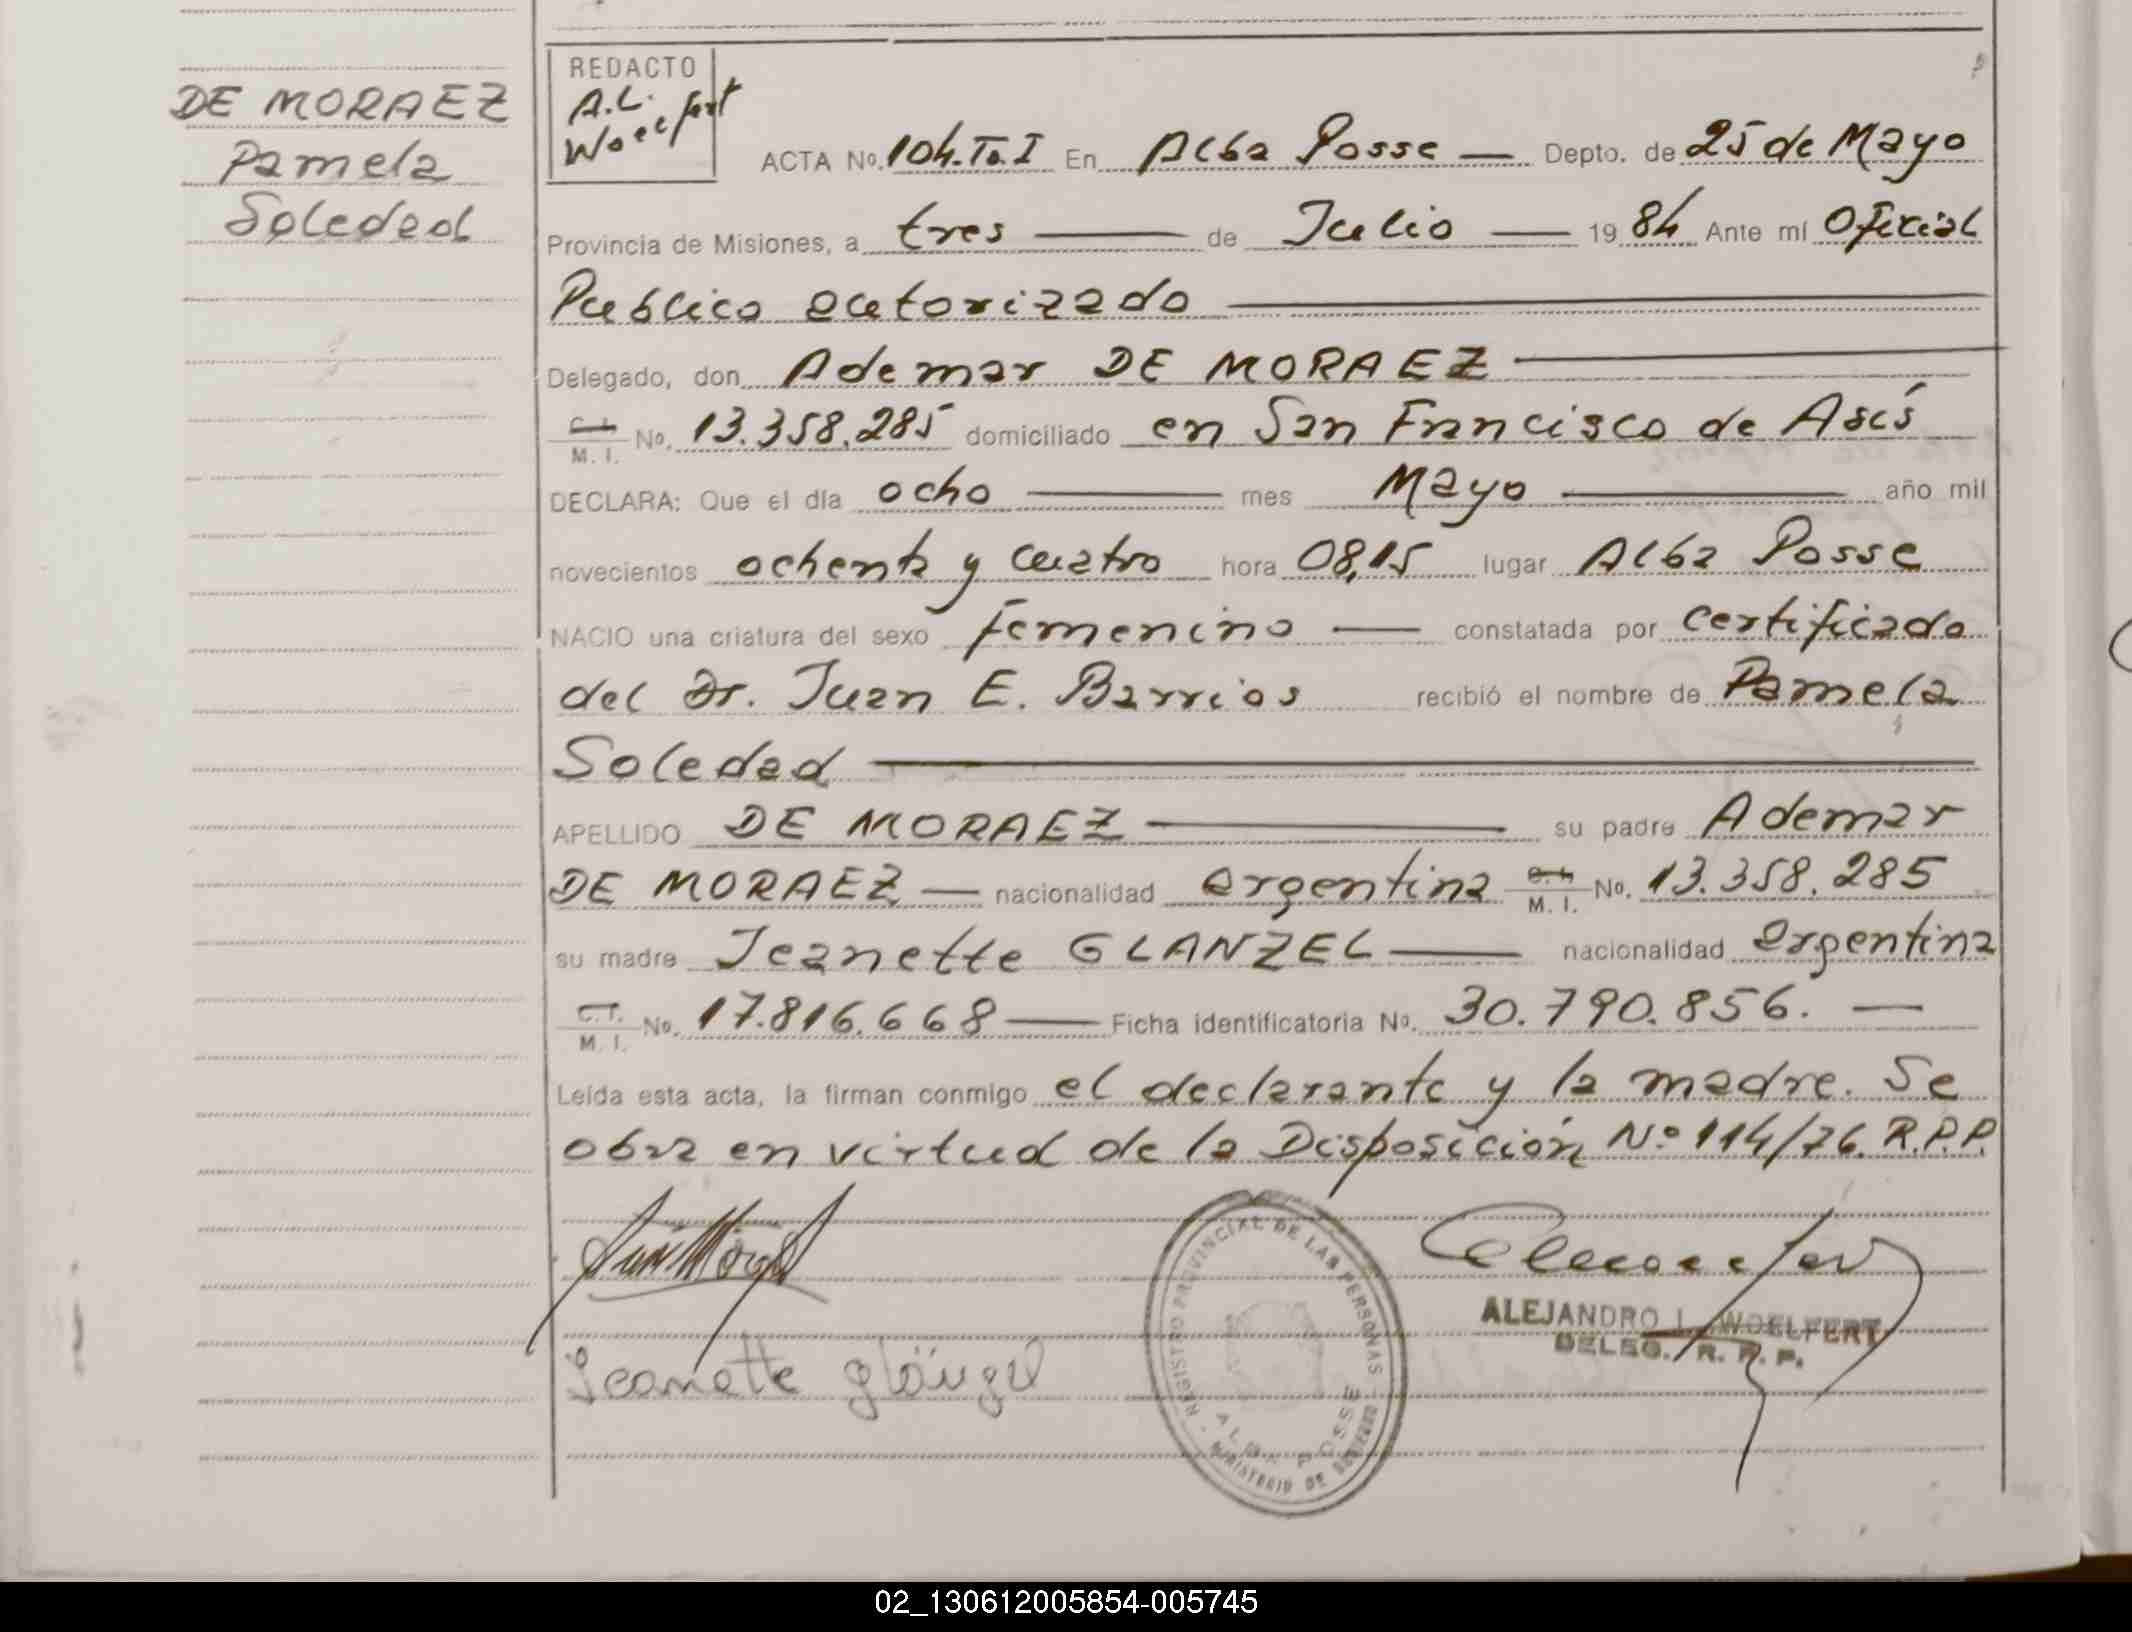 DE MORAEZ
Pamela
Soledad
REDACTO
A.L.
Woelfert
ACTA No. 104. To. I En Alba Posse — Depto. de 25 de Mayo
Provincia de Misiones, a tres — de Julio — 1984 Ante mí Oficial
Publico autorizado
Delegado, don Ademar DE MORAEZ
C. I. M. I. No. 13.358.285 domiciliado en San Francisco de Asís
DECLARA: Que el día ocho — mes Mayo — año mil
novecientos ochenta y cuatro hora 08,15 lugar Alba Posse
NACIO una criatura del sexo femenino — constatada por certificado
del Dr. Juan E. Barrios recibió el nombre de Pamela
Soledad
APELLIDO DE MORAEZ — su padre Ademar
DE MORAEZ — nacionalidad argentina C. I. M. I. No. 13.358.285
su madre Jeanette GLANZEL — nacionalidad argentina
C. I. M. I. No. 17.816.668 — Ficha identificatoria No. 30.790.856. —
Leída esta acta, la firman conmigo el declarante y la madre. Se
obra en virtud de la Disposición Nº 114/76. R.P.P.
REGISTRO PROVINCIAL DE LAS PERSONAS
ALBA POSSE
MINISTERIO DE GOBIERNO
ALEJANDRO L. WOELFERT
DELEG. R. P. P.
Jeanette Glänzel
02_130612005854-005745